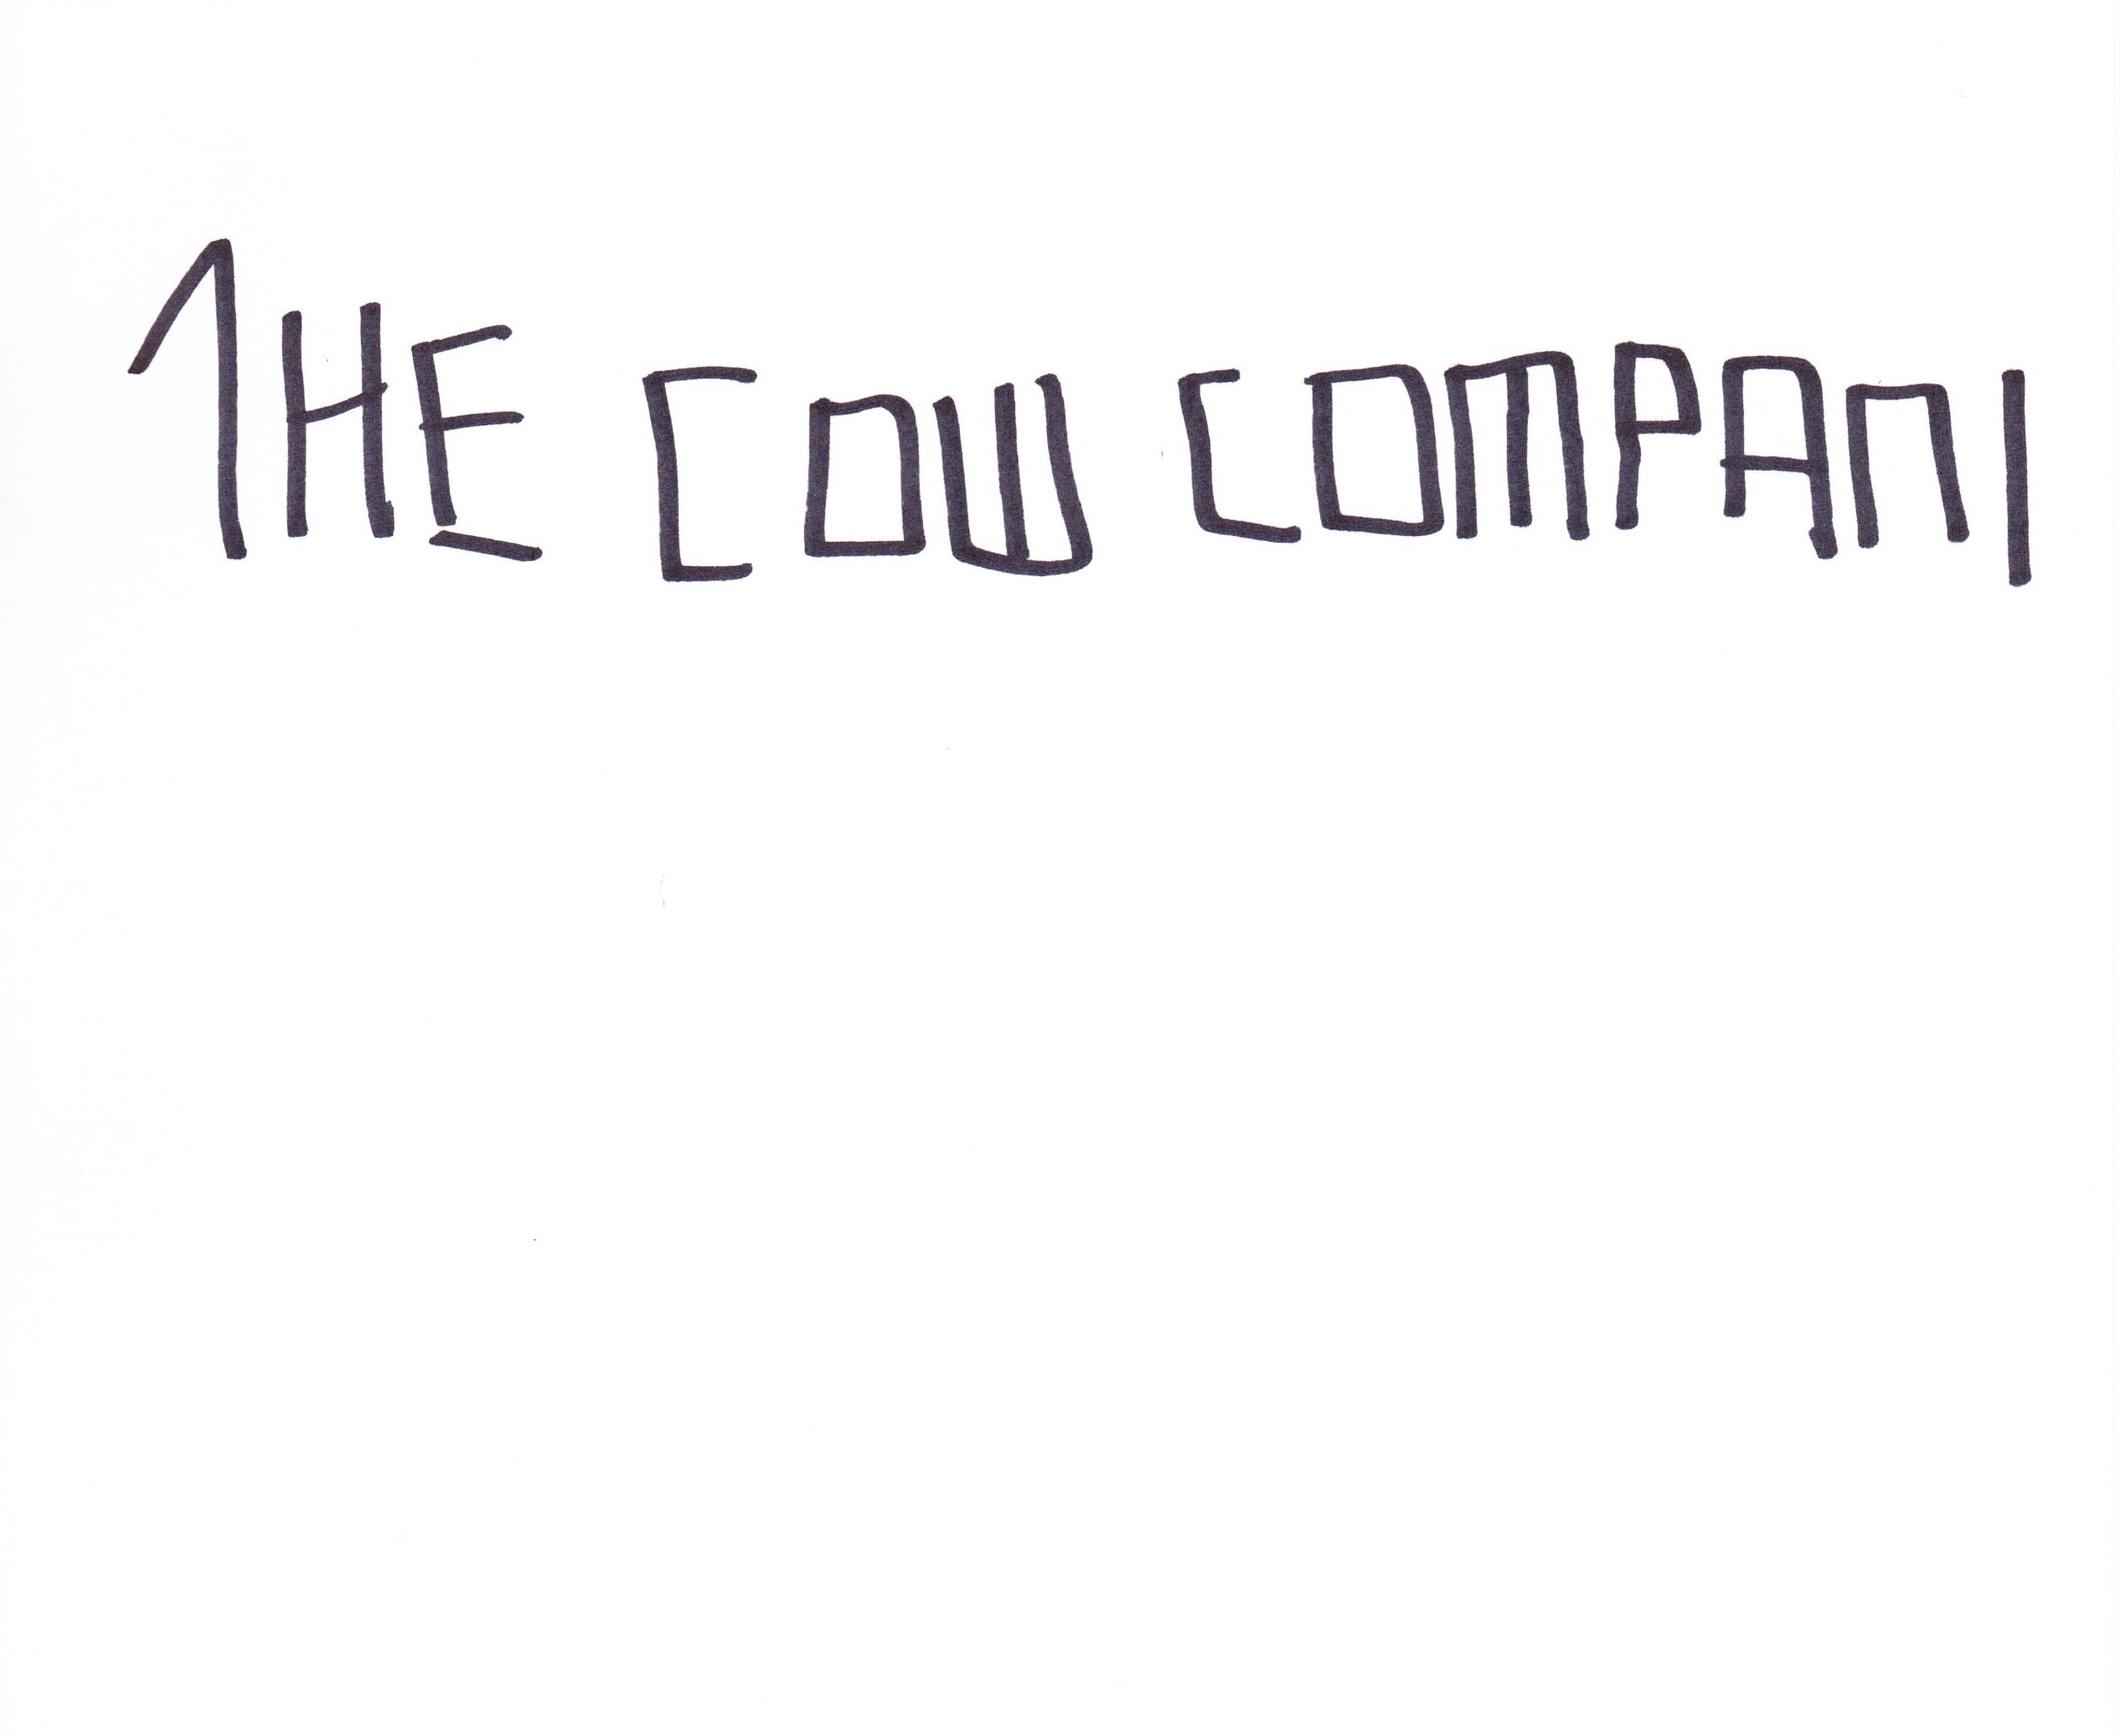 THE COW COMPANI